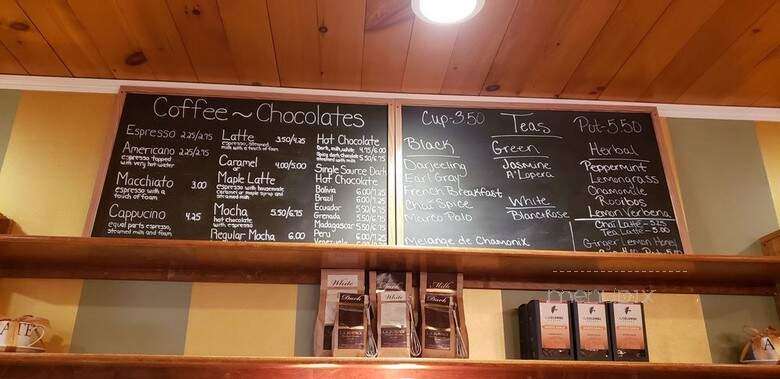 Coffee ~ Chocolates
Espresso 2.25/2.75
Americano 2.25/2.75
espresso topped
with very hot water
Macchiato 3.00
espresso with a
touch of foam
Cappucino 4.25
equal parts espresso,
steamed milk and foam
Latte 3.50/4.25
espresso, steamed
milk with a touch of foam
Caramel 4.00/5.00
or
Maple Latte
espresso with housemade
caramel or maple syrup and
steamed milk
Mocha 5.50/6.75
hot chocolate
with espresso
Regular Mocha 6.00
Hot Chocolate
Dark, milk, white 4.75/6.00
Spicy dark chocolate 5.50/6.75
Single Source Dark
Hot Chocolate
Bolivia 6.00/7.25
Brazil 6.00/7.25
Ecuador 5.50/6.75
Grenada 5.50/6.75
Madagascar 5.50/6.75
Peru 6.00/7.25
Venezuela
Cup-3.50 Teas Pot-5.50
Black
Darjeeling
Earl Gray
French Breakfast
Chai Spice
Marco Polo
Melange de Chamonix
Green
Jasmine
A' L'opera
White
Blanc & Rose
Herbal
Peppermint
Lemongrass
Chamomile
Rooibos
Lemon Verbena
Chai Latte-
Tea Latte-5.00
Ginger Lemon Honey
White
Dark
Dark
White
Milk
Dark
menupix
LA COLOMBE
LA COLOMBE
LA COLOMBE
ATE
A